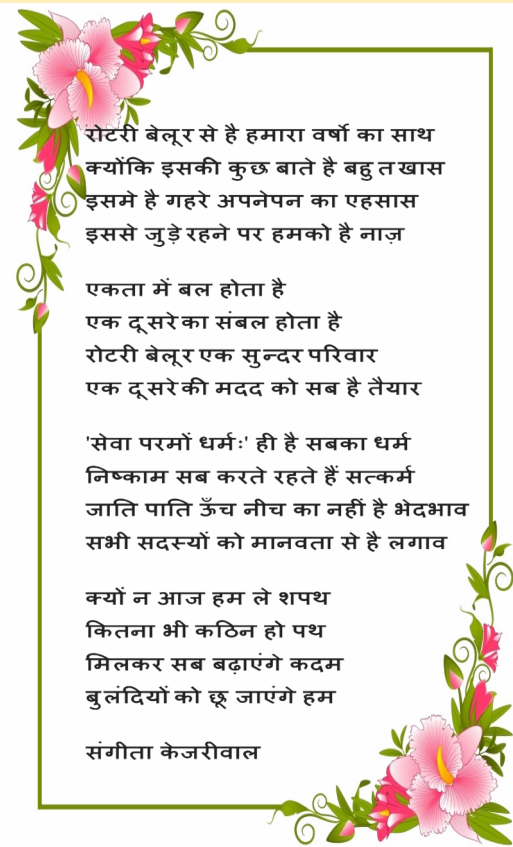 रोटरी बेलूर से है हमारा वर्षो का साथ
क्योंकि इसकी कुछ बाते है बहुत खास
इसमे है गहरे अपनेपन का एहसास
इससे जुड़े रहने पर हमको है नाज़
एकता में बल होता है
एक दूसरे का संबल होता है
रोटरी बेलूर एक सुन्दर परिवार
एक दूसरे की मदद को सब है तैयार
'सेवा परमों धर्मः' ही है सबका धर्म
निष्काम सब करते रहते हैं सत्कर्म
जाति पाति ऊँच नीच का नहीं है भेदभाव
सभी सदस्यों को मानवता से है लगाव
क्यों न आज हम ले शपथ
कितना भी कठिन हो पथ
मिलकर सब बढ़ाएंगे कदम
बुलंदियों को छू जाएंगे हम
संगीता केजरीवाल